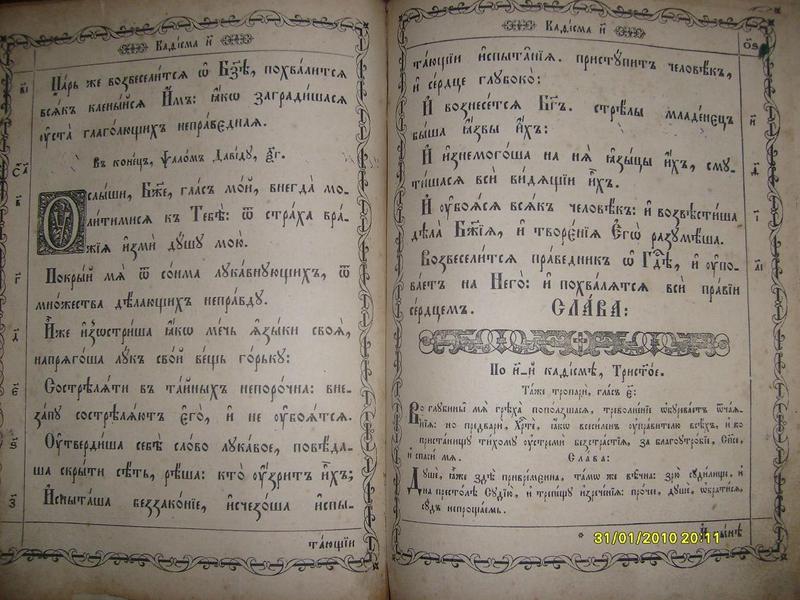 Каѳі́сма и҃
в҃і
Ца́рь же возвесели́тся ѡ҆ Бз҃ѣ, похва́лится
всѧ́къ клены́йсѧ И҆́мъ: ꙗ҆́кѡ загради́шасѧ
ᲂу҆ста̀ глаго́лющихъ непра́вєднаѧ.
Въ коне́цъ, ѱало́мъ Даві́ду, ѯ҃г.
в҃
Оу҆слы́ши, Бж҃е, гла́съ мо́й, внегда̀ мо-
ли́тимисѧ къ Тебѣ̀: ѿ стра́ха вра́-
жїѧ и҆змѝ дꙋ́шꙋ мою̀.
г҃
Покры́й мѧ̀ ѿ со́нма лꙋка́внꙋющихъ, ѿ
мно́жества дѣ́лающихъ непра́вдꙋ.
д҃
И҆̀же и҆зѡстри́ша ꙗ҆́кѡ ме́чь ѧ҆зы́ки своѧ̑,
напрѧго́ша лꙋ́къ сво́й ве́щь го́рькꙋ:
є҃
Сострѣлѧ́ти въ та́йныхъ непоро́чна: вне-
за́пꙋ сострѣлѧ́ютъ є҆го̀, и҆ не ᲂу҆боѧ́тсѧ.
ѕ҃
Оу҆тверди́ша себѣ̀ сло́во лꙋка́вое, повѣ́да-
ша скры́ти сѣ́ть, рѣ́ша: кто̀ ᲂу҆́зритъ и҆̀хъ;
з҃
И҆спыта́ша беззако́нїе, и҆счезо́ша и҆спы-
та́ющїи
Каѳі́сма и҃
ѻ҃ѕ
та́ющїи и҆спыта̑нїѧ. пристꙋ́питъ человѣ́къ,
и҆ се́рдце глꙋбоко̀:
и҃
И҆ вознесе́тсѧ Бг҃ъ. стрѣ́лы младе́нєцъ
бы́ша ꙗ҆́звы и҆́хъ:
д҃
И҆ и҆знемого́ша на нѧ̀ ꙗ҆зы́цы и҆́хъ, смꙋ-
ти́шасѧ всѝ ви́дѧщїи и҆̀хъ.
і҃
И҆ ᲂу҆боѧ́сѧ всѧ́къ человѣ́къ: и҆ возвѣсти́ша
дѣла̀ Бж҃їѧ, и҆ творе́нїѧ Є҆гѡ̀ разꙋмѣ́ша.
а҃і
Возвесели́тсѧ пра́ведникъ ѡ҆ Гдⷭ҇ѣ, и҆ ᲂу҆по-
ва́етъ на Него̀: и҆ похва́лѧтсѧ всѝ пра́вїи
се́рдцемъ. СЛА́ВА:
По и҃-й каѳі́смѣ, Трист҃о́е.
Та́же тропарѝ, гла́съ є҃:
Во глꙋбинꙋ̀ мѧ̀ грѣха̀ поползша́сѧ, треволне́нїе ѡ҆бꙋрева́етъ ѿча́ѧ-
нїѧ: но предварѝ, Хрⷭ҇тѐ, ꙗ҆́кѡ всеси́ленъ ᲂу҆пра́вителю всѣ́хъ, и҆ ко
приста́нищꙋ ти́хомꙋ ᲂу҆стремѝ безстра́стїѧ, за бл҃гоꙋтро́бїе, Сп҃се,
и҆ спасѝ мѧ̀. Сла́ва:
Дꙋшѐ, ꙗ҆̀же здѣ̀ привре́мєнна, та́мѡ же вѣ̑чна: зрю̀ сꙋди́лище, и҆
на престо́лѣ Сꙋдїю̀, и҆ трепе́щꙋ и҆зрече́нїѧ: про́чее, дꙋшѐ, ѡ҆брати́сѧ,
сꙋ́дъ непроща́емь.
И҆ ны́нѣ
31/01/2010 20:11